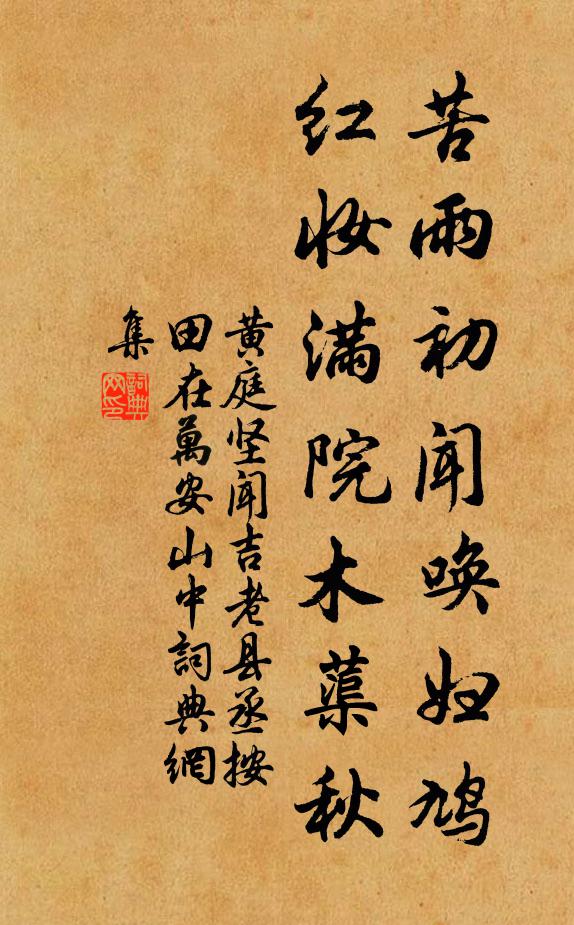 苦雨初闻唤妇鸠
红妆满院木蕖秋
黄庭坚闻吉老县丞按
田在萬安山中詞典網
集
詞典
网印